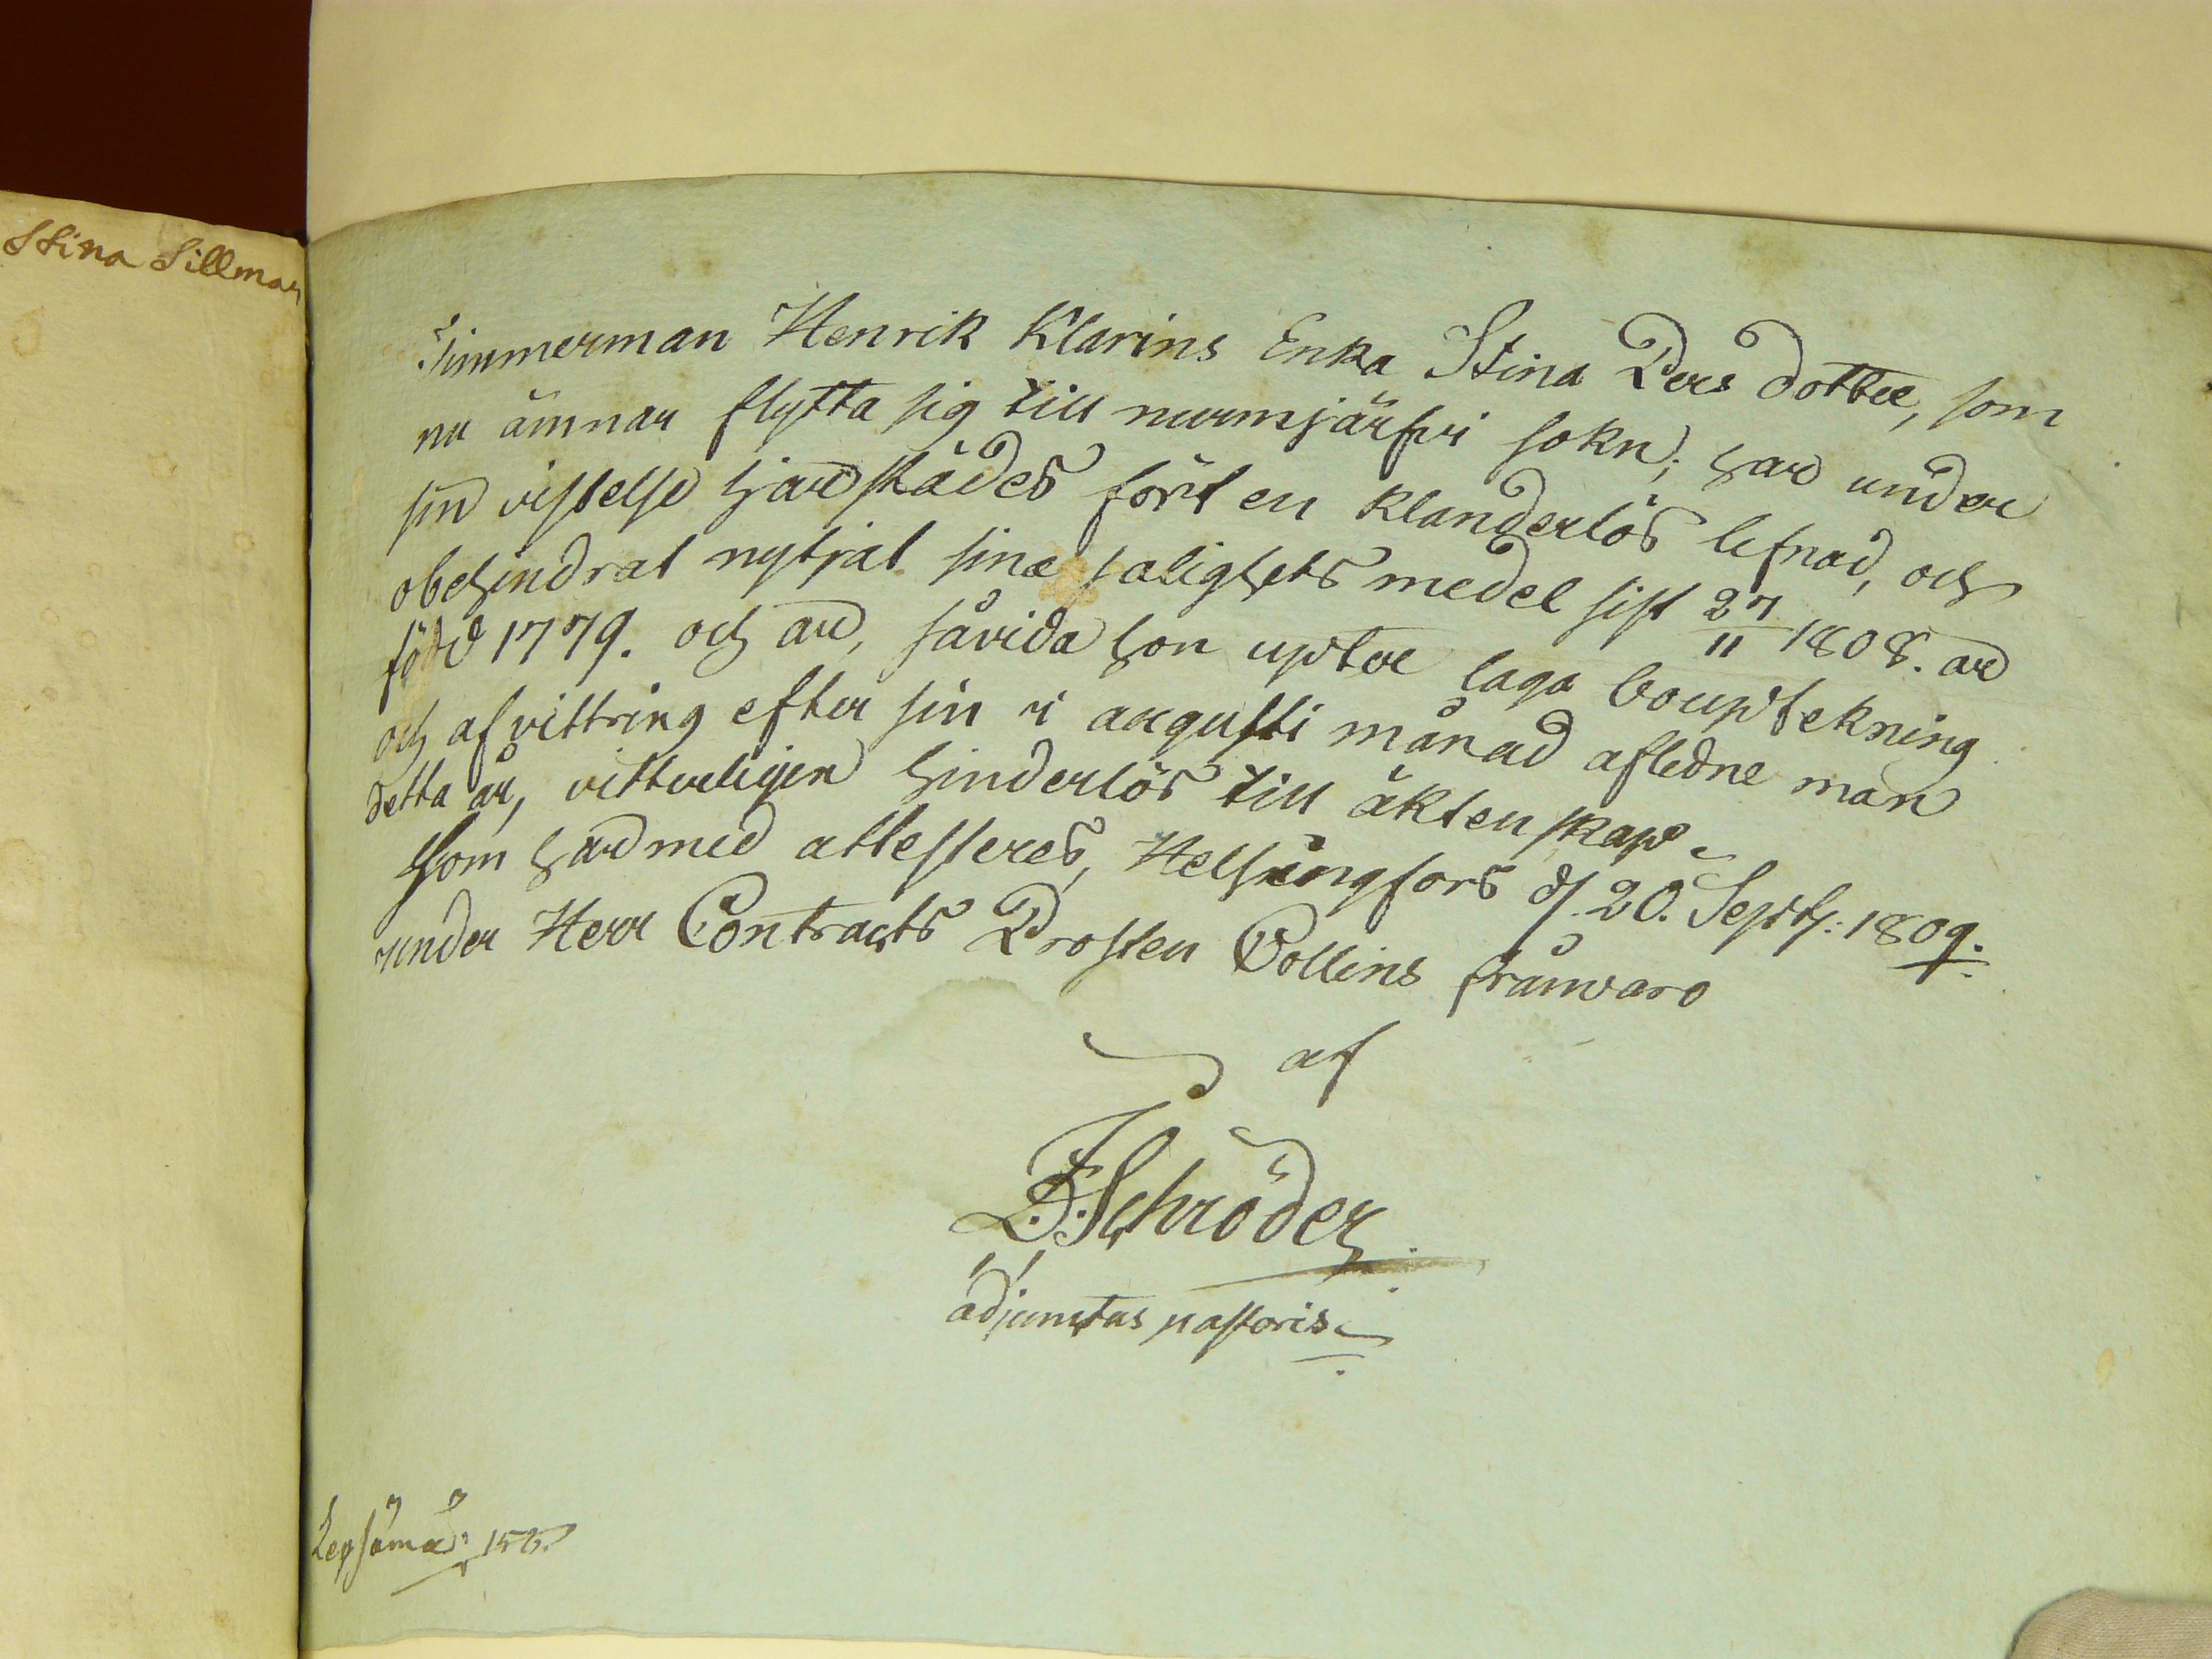 Stina Sillman
Timmerman Henrik Klarins Enka Stina Pers dotter, som
nu ämnar flytta sig till nurmijärfvi sokn, har under
sin vistelse härstädes fört en klanderlös lefnad, och
obehindrat nytjat sina salighets medel sist 27/11 1808. är
född 1779. och är, såvida hon upter laga bouptekning
och afvittring efter sin i augusti månad afledne man
detta år, vitterligen hinderlös till äktenskap
Som härmed attesteres, Helsingfors d. 20. Septb: 1809.
under Herr Contracts Prosten Collins frånvaro
af
Schröder
adjunctus pastoris
Lepsämä: 156.